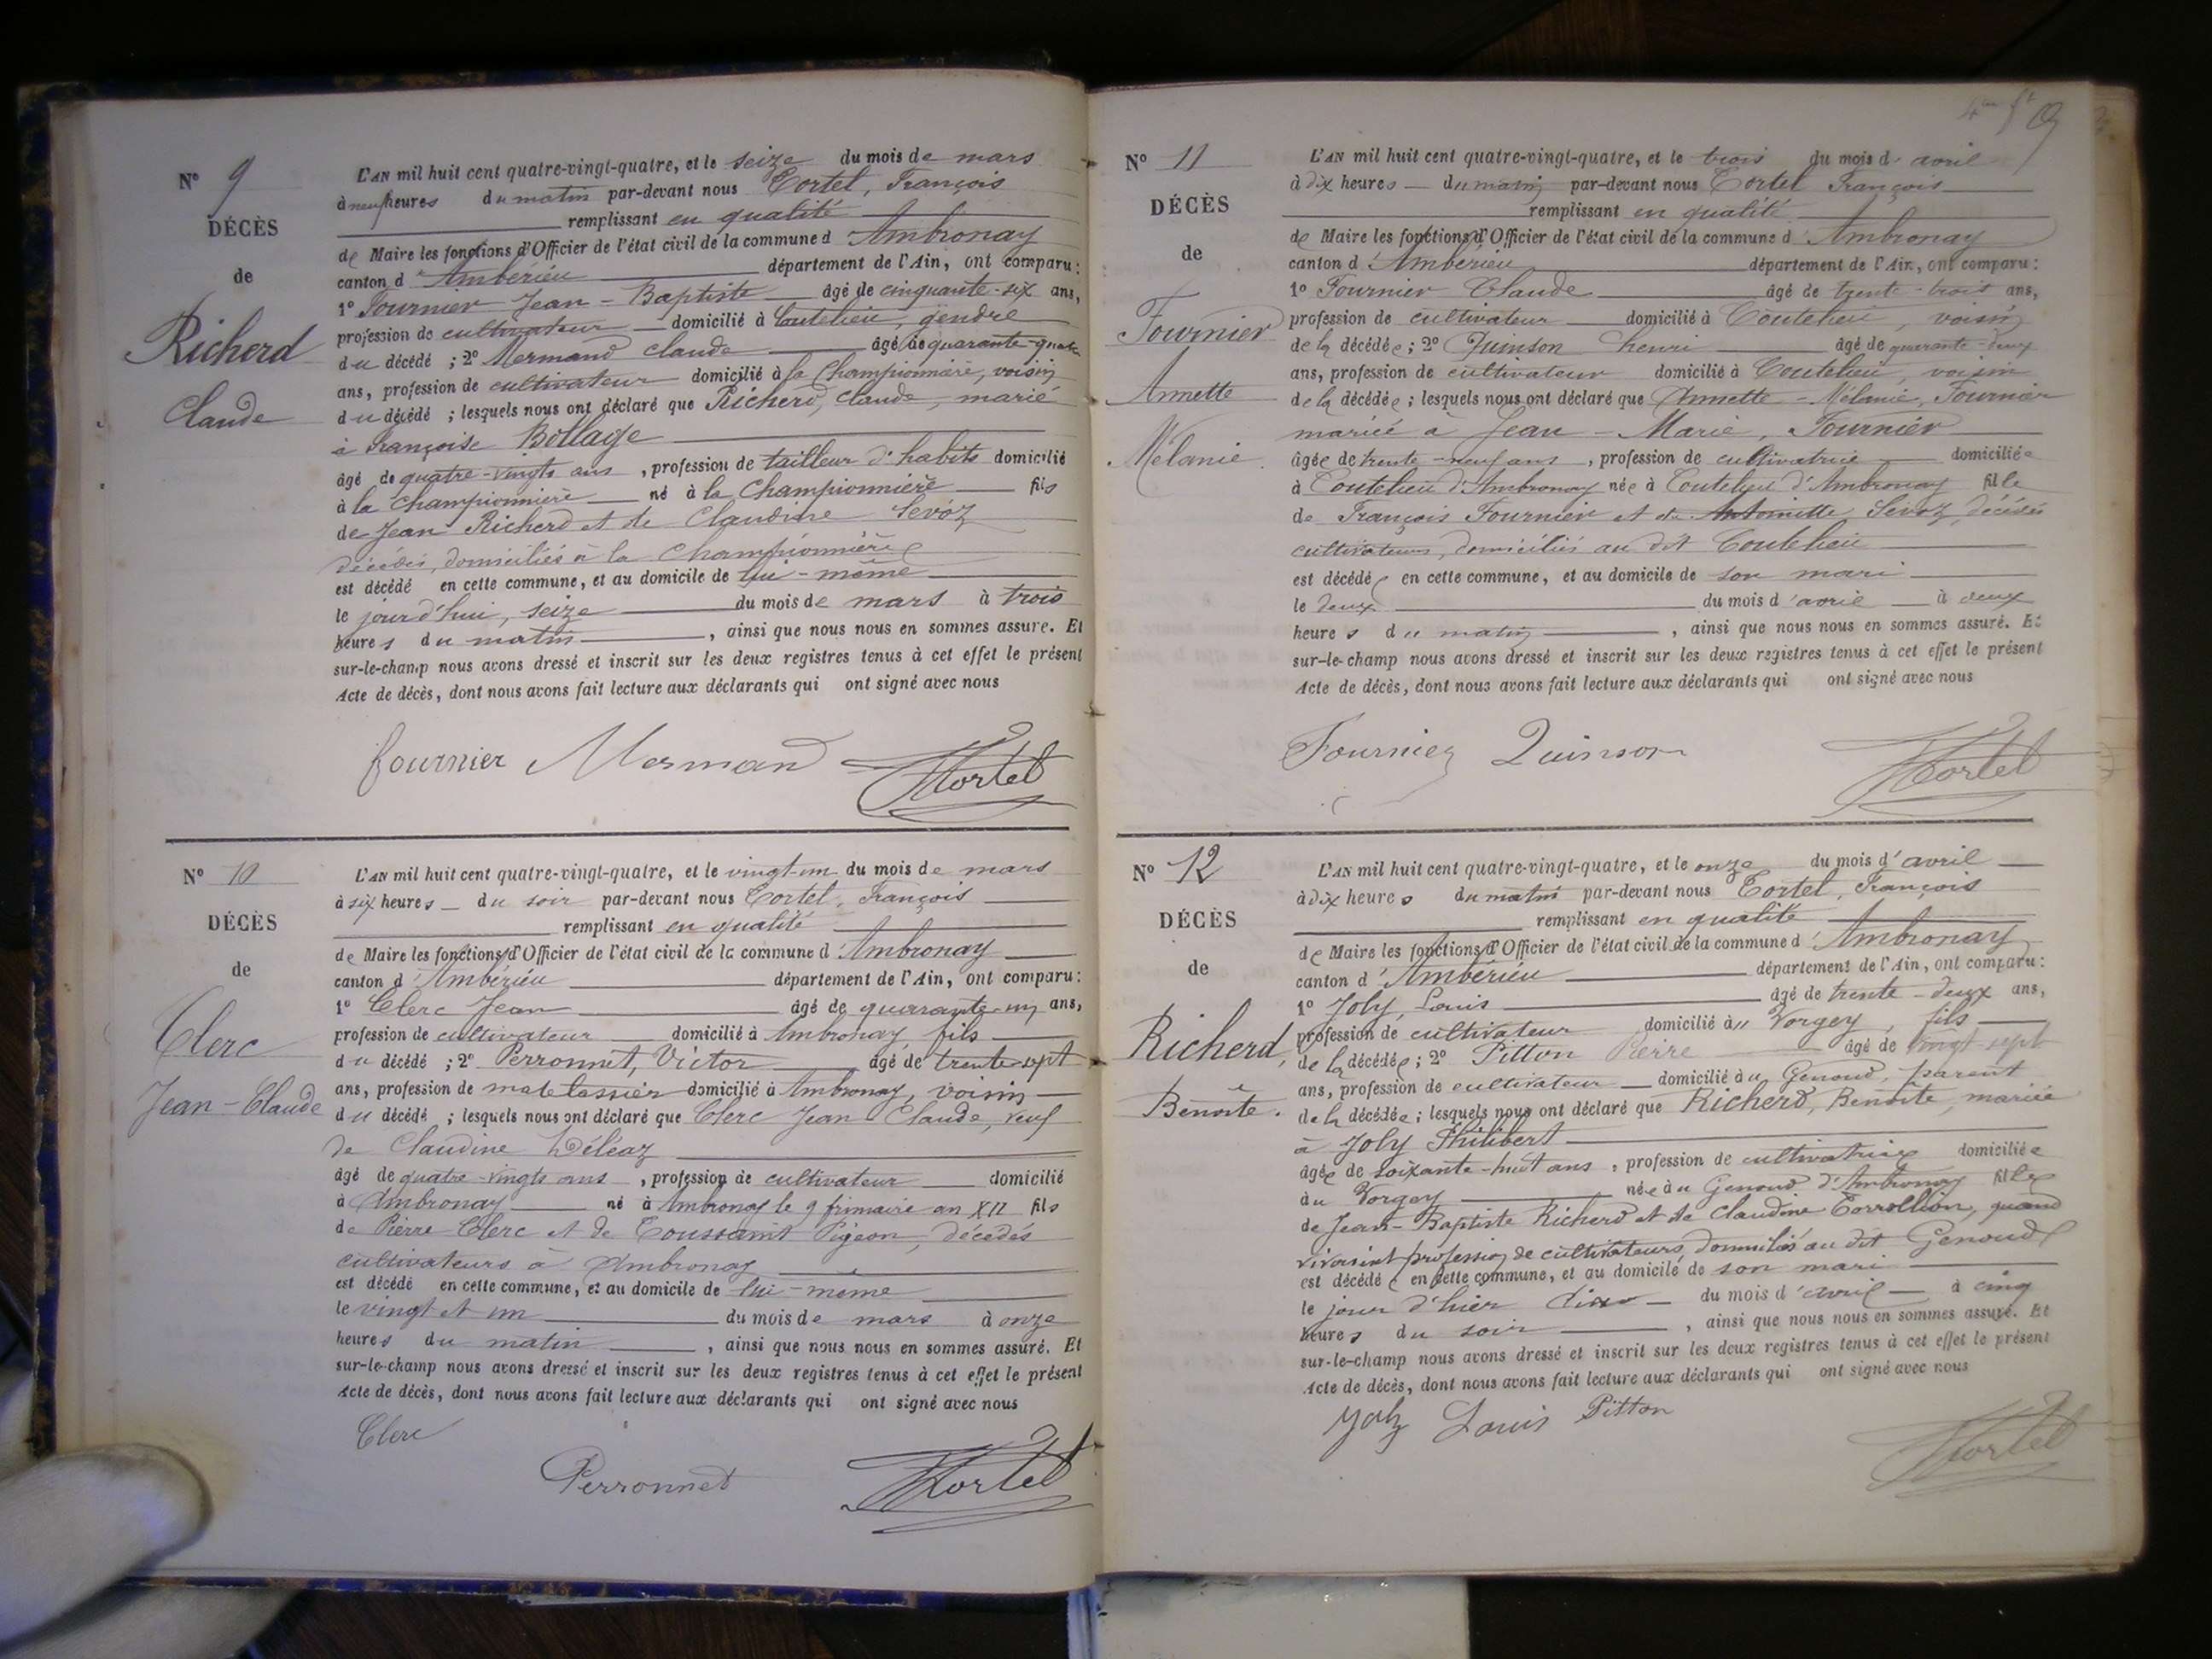 N° 9
DÉCÈS
de
Richerd
Claude
L'AN mil huit cent quatre-vingt-quatre, et le seize du mois de mars
à neuf heures du matin par-devant nous Tortel, François
remplissant en qualité
de Maire les fonctions d'Officier de l'état civil de la commune d'Ambronay
canton d'Ambérieu département de l'Ain, ont comparu :
1° Fournier Jean-Baptiste âgé de cinquante-six ans,
profession de cultivateur domicilié à Coutelieu, gendre
du décédé ; 2° Mermand Claude âgé de quarante-quatre
ans, profession de cultivateur domicilié à la Championnière, voisin
du décédé ; lesquels nous ont déclaré que Richerd, Claude, marié
à Françoise Bollage
âgé de quatre-vingts ans, profession de tailleur d'habits domicilié
à la Championnière né à la Championnière fils
de Jean Richerd et de Claudine Sevoz
décédés, domiciliés à la Championnière
est décédé en cette commune, et au domicile de lui-même
le jourd'hui, seize du mois de mars à trois
heures du matin, ainsi que nous nous en sommes assuré. Et
sur-le-champ nous avons dressé et inscrit sur les deux registres tenus à cet effet le présent
Acte de décès, dont nous avons fait lecture aux déclarants qui ont signé avec nous
fournier Mermand Tortel
N° 10
DÉCÈS
de
Clerc
Jean-Claude
L'AN mil huit cent quatre-vingt-quatre, et le vingt-un du mois de mars
à six heures du soir par-devant nous Tortel, François
remplissant en qualité
de Maire les fonctions d'Officier de l'état civil de la commune d'Ambronay
canton d'Ambérieu département de l'Ain, ont comparu :
1° Clerc Jean âgé de quarante-un ans,
profession de cultivateur domicilié à Ambronay, fils
du décédé ; 2° Perronnet, Victor âgé de trente-sept
ans, profession de matelassier domicilié à Ambronay, voisin
du décédé ; lesquels nous ont déclaré que Clerc Jean-Claude, veuf
de Claudine Déléaz
âgé de quatre-vingts ans, profession de cultivateur domicilié
à Ambronay né à Ambronay le 9 frimaire an XII fils
de Pierre Clerc et de Toussaint Pigeon, décédés
cultivateurs à Ambronay
est décédé en cette commune, et au domicile de lui-même
le vingt et un du mois de mars à onze
heures du matin, ainsi que nous nous en sommes assuré. Et
sur-le-champ nous avons dressé et inscrit sur les deux registres tenus à cet effet le présent
Acte de décès, dont nous avons fait lecture aux déclarants qui ont signé avec nous
Clerc
Perronnet Tortel
N° 11
DÉCÈS
de
Fournier
Annette
Mélanie.
L'AN mil huit cent quatre-vingt-quatre, et le trois du mois d'avril
à dix heures du matin par-devant nous Tortel François
remplissant en qualité
de Maire les fonctions d'Officier de l'état civil de la commune d'Ambronay
canton d'Ambérieu département de l'Ain, ont comparu :
1° Fournier Claude âgé de trente-trois ans,
profession de cultivateur domicilié à Coutelieu, voisin
de la décédée ; 2° Quinson henri âgé de quarante-deux
ans, profession de cultivateur domicilié à Coutelieu, voisin
de la décédée ; lesquels nous ont déclaré que Annette-Mélanie, Fournier
mariée à Jean-Marie, Fournier
âgée de trente-neuf ans, profession de cultivatrice domiciliée
à Coutelieu d'Ambronay née à Coutelieu d'Ambronay fille
de François Fournier et de Antoinette Sevoz, décédés
cultivateurs, domiciliés au dit Coutelieu
est décédée en cette commune, et au domicile de son mari
le deux du mois d'avril à deux
heures du matin, ainsi que nous nous en sommes assuré. Et
sur-le-champ nous avons dressé et inscrit sur les deux registres tenus à cet effet le présent
Acte de décès, dont nous avons fait lecture aux déclarants qui ont signé avec nous
Fournier Quinson Tortel
N° 12
DÉCÈS
de
Richerd,
Benoîte.
L'AN mil huit cent quatre-vingt-quatre, et le onze du mois d'avril
à dix heures du matin par-devant nous Tortel, François
remplissant en qualité
de Maire les fonctions d'Officier de l'état civil de la commune d'Ambronay
canton d'Ambérieu département de l'Ain, ont comparu :
1° Joly, Louis âgé de trente-deux ans,
profession de cultivateur domicilié au Vorgey, fils
de la décédée ; 2° Pitton Pierre âgé de vingt-sept
ans, profession de cultivateur domicilié au Genoud, parent
de la décédée ; lesquels nous ont déclaré que Richerd, Benoîte, mariée
à Joly Philibert
âgée de soixante-huit ans, profession de cultivatrice domiciliée
au Vorgey née au Genoud d'Ambronay fille
de Jean-Baptiste Richerd et de Claudine Corrollion, quand
vivaient profession de cultivateurs, domiciliés au dit Genoud
est décédée en cette commune, et au domicile de son mari
le jour d'hier dix du mois d'avril à cinq
heures du soir, ainsi que nous nous en sommes assuré. Et
sur-le-champ nous avons dressé et inscrit sur les deux registres tenus à cet effet le présent
Acte de décès, dont nous avons fait lecture aux déclarants qui ont signé avec nous
Joly Louis Pitton
Tortel